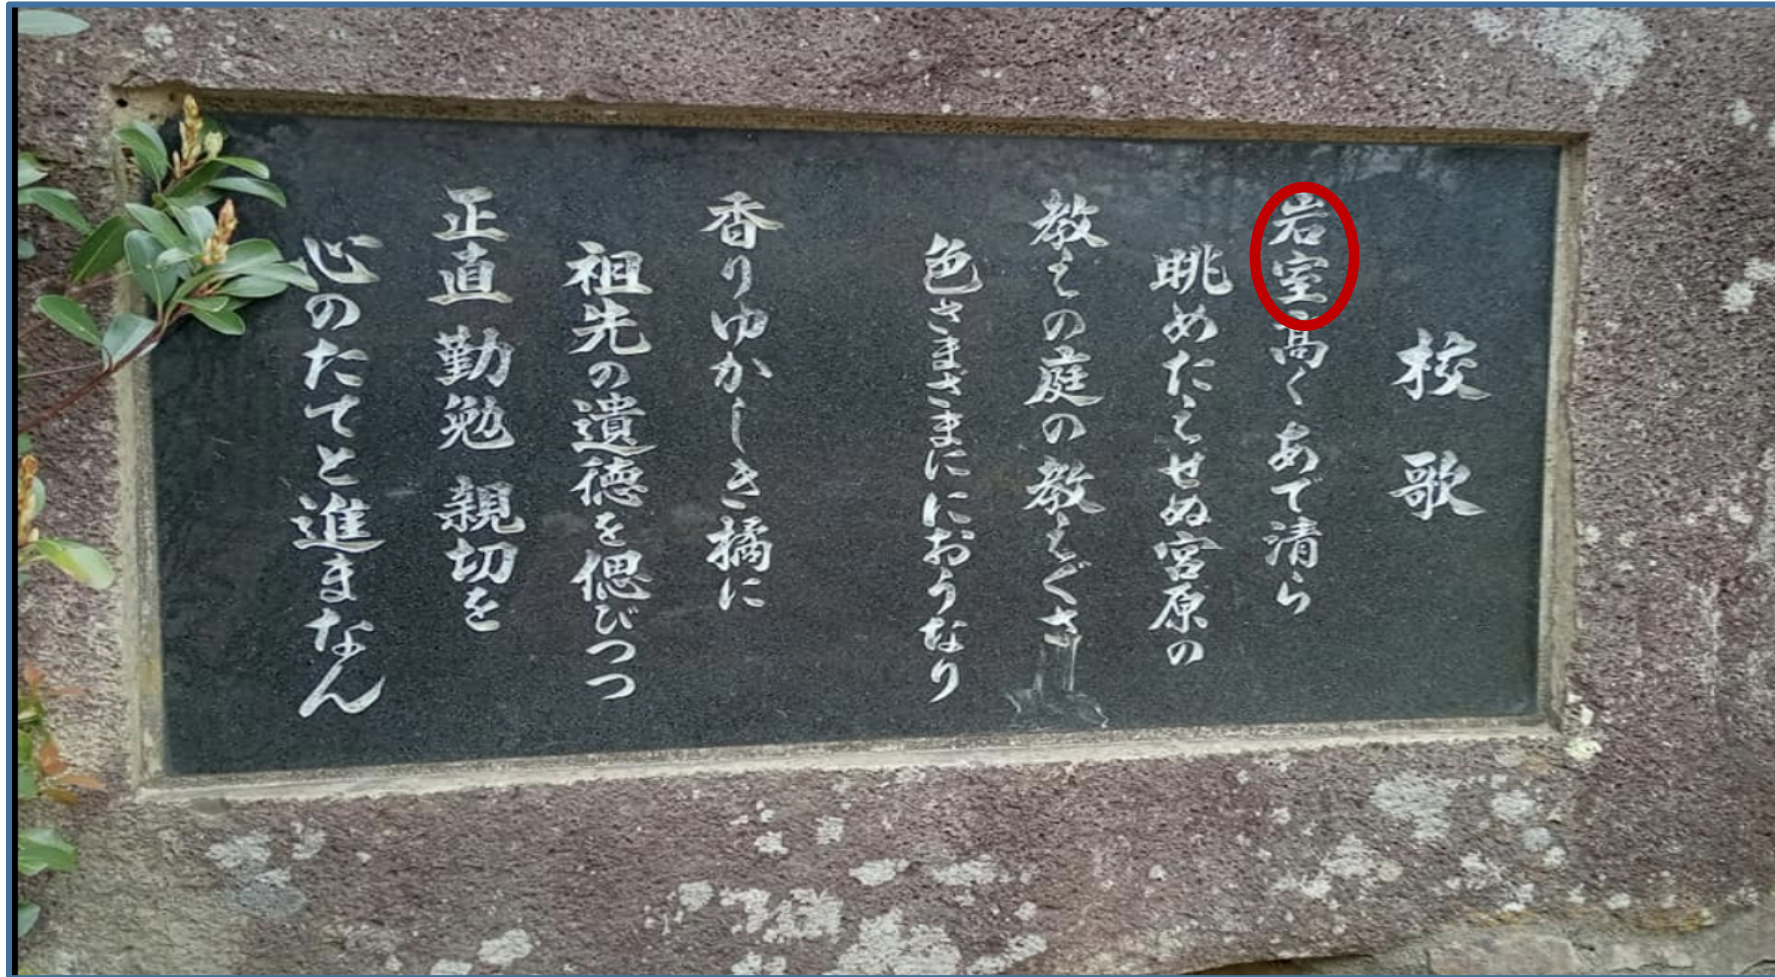 校歌
岩室高くあで清ら
眺めたえせぬ宮原の
教えの庭の教えぐさ
色さまざまににおうなり
香りゆかしき橘に
祖先の遺徳を偲びつつ
正直 勤勉 親切を
心のたてと進まなん